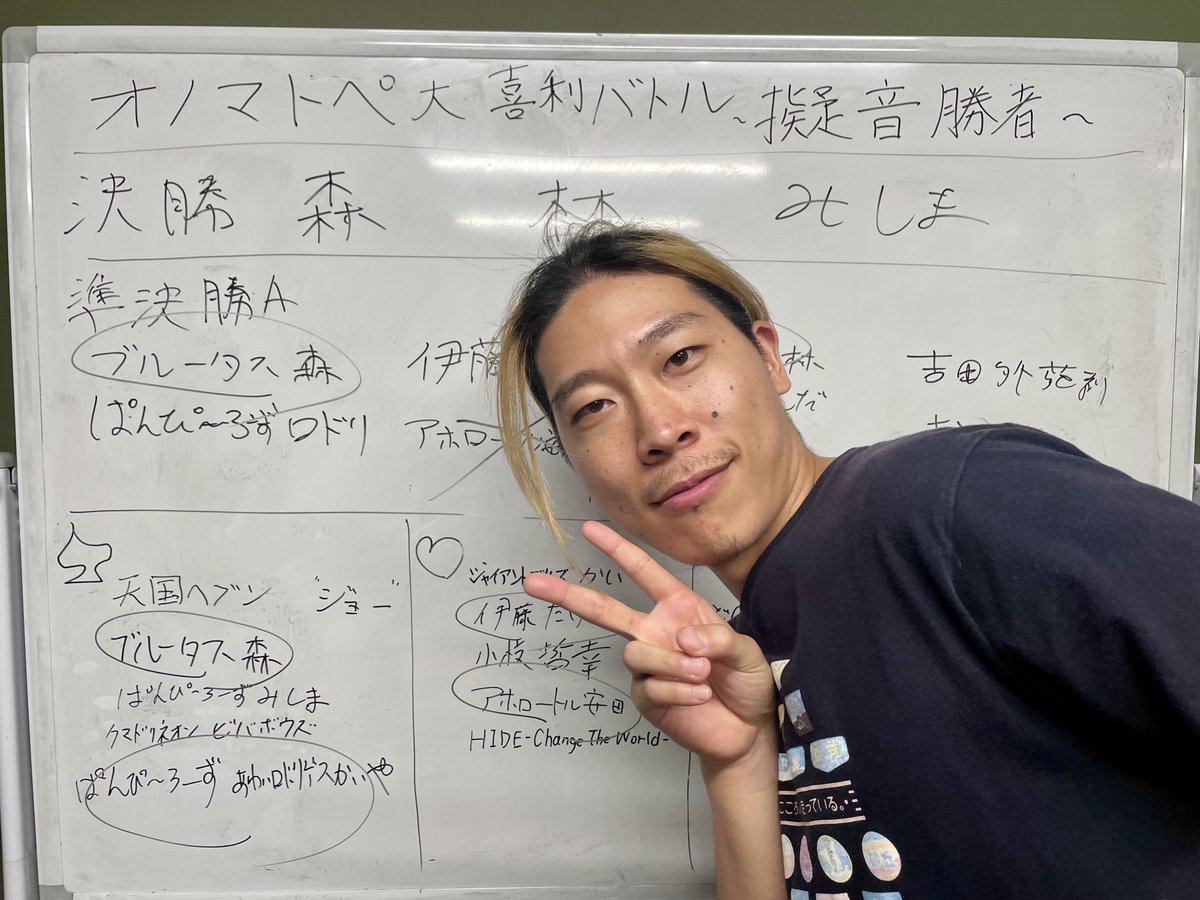 オノマトペ大喜利バトル~擬音勝者~
決勝 森 林 みしま
準決勝A
ブルータス森 伊藤 林 吉田
ぱんぴ～ろーず ロドリ アホロー だ
天国ヘブン "ジョー"
ブルータス森
ぱんぴ～ろーずみしま
クマドリネオン ビリバボウズ
ぱんぴ～ろーず あわいロドリゲスかいや
ジャイアント かい
伊藤
小枝哲幸
アホロートル安田
HIDE-Change The World-
こころ 走っている。